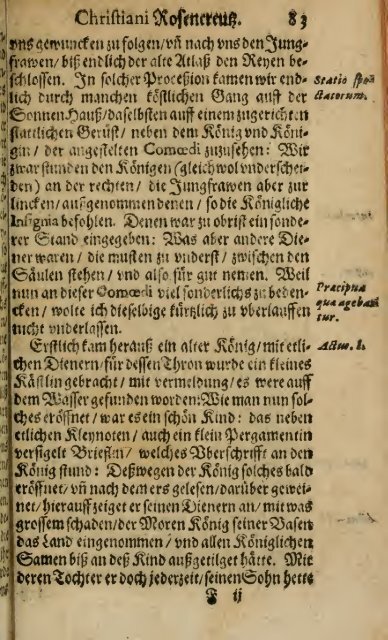 Christiani Rosencreutz. 83
vns gewuncken zu folgen/ vñ nach vns den Jung-
frawen/ biß endlich der alte Atlaß den Reyen be-
schlossen. Jn solcher Proceßion kamen wir end-
lich durch manchen köstlichen Gang auff der
Sonnen Hauß/ daselbsten auff einem zugerichten
stattlichen Gerüst/ neben dem König vnd Köni-
gin/ der angestelten Comœdi zuzusehen: Wir
zwar stunden den Königen (gleichwol vnderschei-
den) an der rechten/ die Jungfrawen aber zur
lincken/ außgenommen denen/ so die Königliche
Insignia befohlen. Denen war zu obrist ein sonde-
rer Stand eingegeben: Was aber andere Die-
ner waren/ die musten zu vnderst/ zwischen den
Säulen stehen/ vnd also für gut nemen. Weil
nun an dieser Comœdi viel sonderlichs zu beden-
cken/ wolte ich dieselbige kürtzlich zu vberlauffen
nicht vnderlassen.
Erstlich kam herauß ein alter König/ mit etli-
chen Dienern/ für dessen Thron wurde ein kleines
Kästlin gebracht/ mit vermeldung/ es were auff
dem Wasser gefunden worden: Wie man nun sol-
ches eröffnet/ war es ein schön Kind: das neben
etlichen Kleynoten/ auch ein klein Pergamentin
versigelt Brieflin/ welches Vberschrifft an den
König stund: Deßwegen der König solches bald
eröffnet/ vñ nach dem ers gelesen/ darüber gewei-
net/ hierauff zeiget er seinen Dienern an/ mit was
grossem schaden/ der Moren König seiner Basen
das Land eingenommen/ vnd allen Königlichen
Samen biß an deß Kind außgetilget hätte. Mit
deren Tochter er doch jederzeit/ seinen Sohn hette
F ij
Statio spe-
ctatorum.
Præcipua
quæ ageban-
tur.
Actus. I.